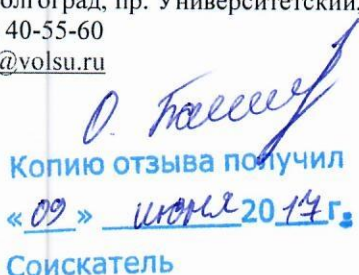 олгоград, пр. Университетский,
40-55-60
@volsu.ru
О.
Копию отзыва получил
«09» июня 2017г.
Соискатель